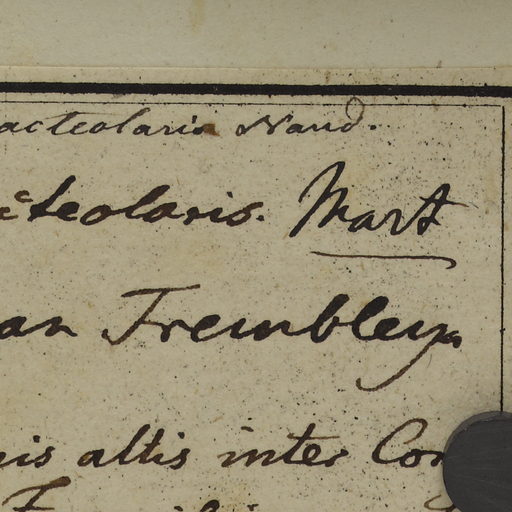 acteolaris Naud.
cteolaris. Mart
an Trembleya.
is altis inter Con